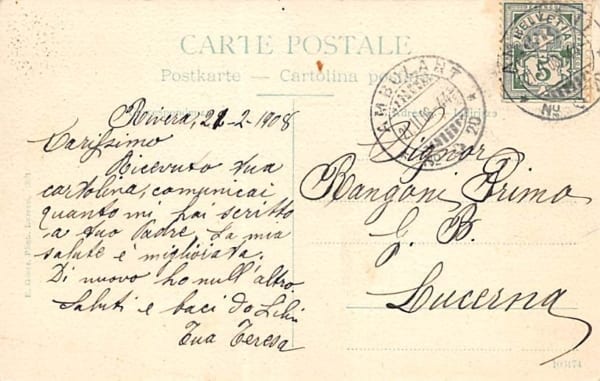 CARTE POSTALE
Postkarte — Cartolina postale
HELVETIA
5
AMBULANT
Rivera, 21-2-1908
Carissimo
Ricevuto tua
cartolina, comunicai
quanto mi hai scritto
a tuo Padre. La mia
salute è migliorata.
Di nuovo ho null'altro
Saluti e baci
Tua Teresa
Signor
Rangoni Primo
G. B.
Lucerna